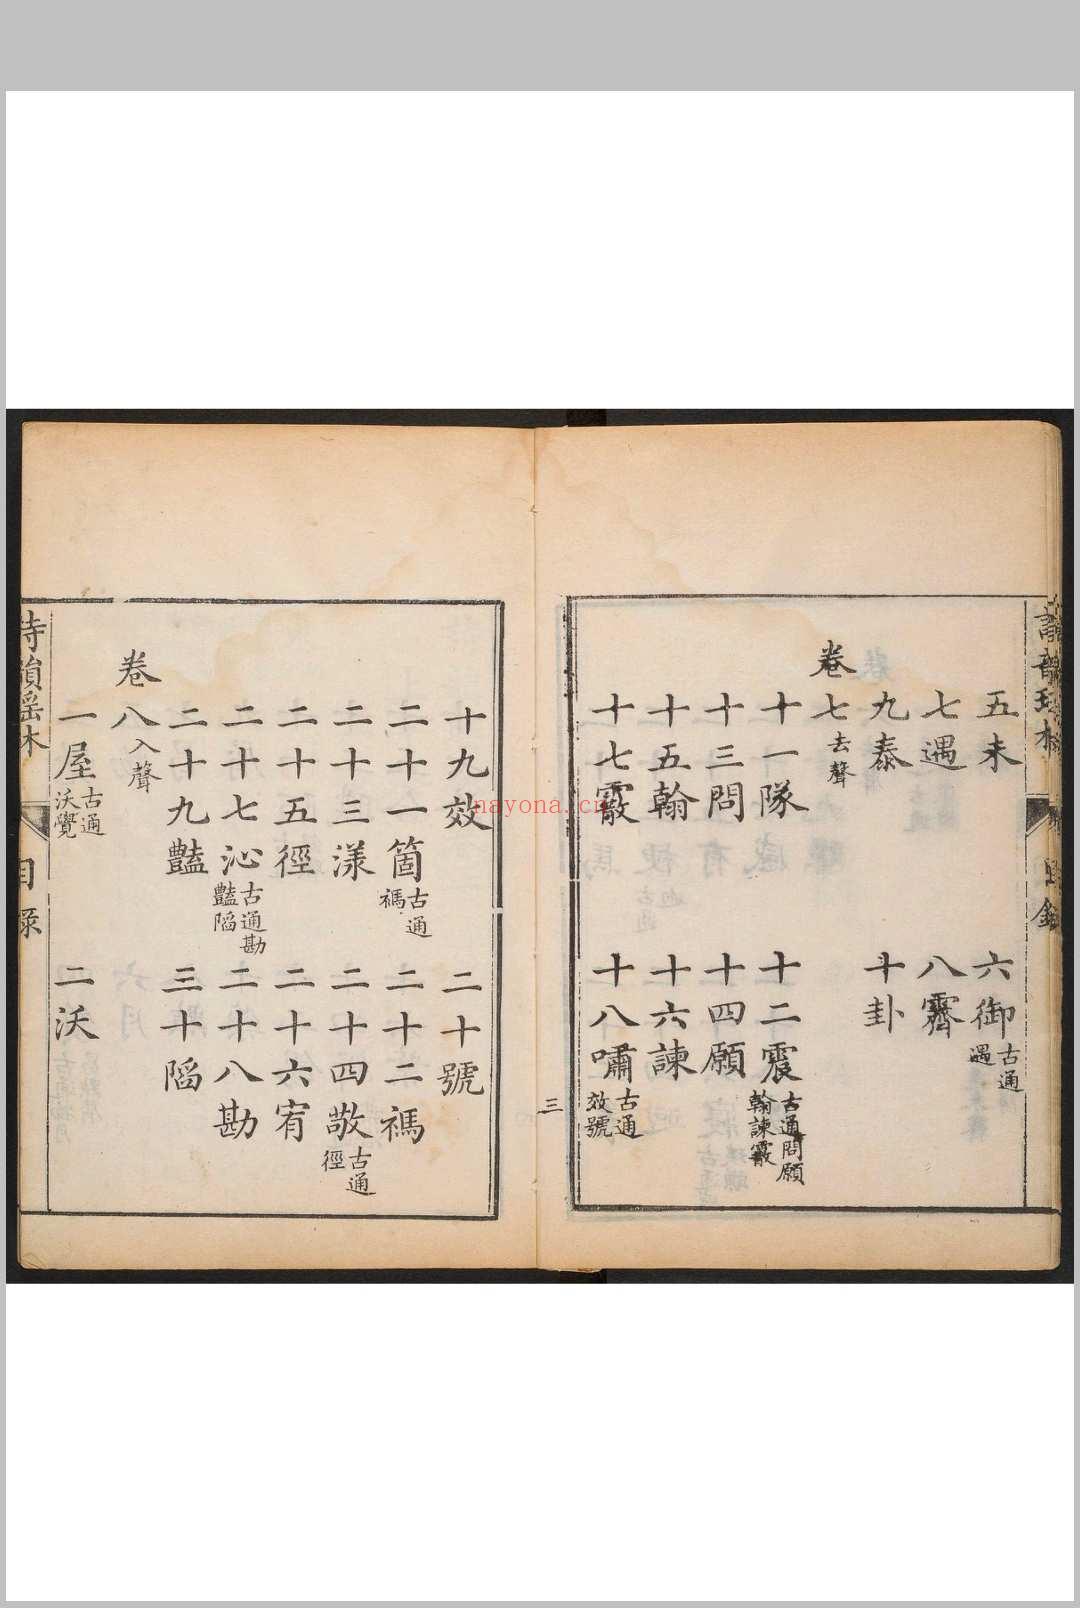 五未　六御古通遇
七遇　八霽
九泰　十卦
卷七去聲
十一隊　十二震古通問願翰諫霰
十三問　十四願
十五翰　十六諫
十七霰　十八嘯古通效號
三
十九效　二十號
二十一箇古通禡　二十二禡
二十三漾　二十四敬古通徑
二十五徑　二十六宥
二十七沁古通勘豔陷　二十八勘
二十九豔　三十陷
卷八入聲
一屋古通沃覺　二沃
目录
nayona.cn